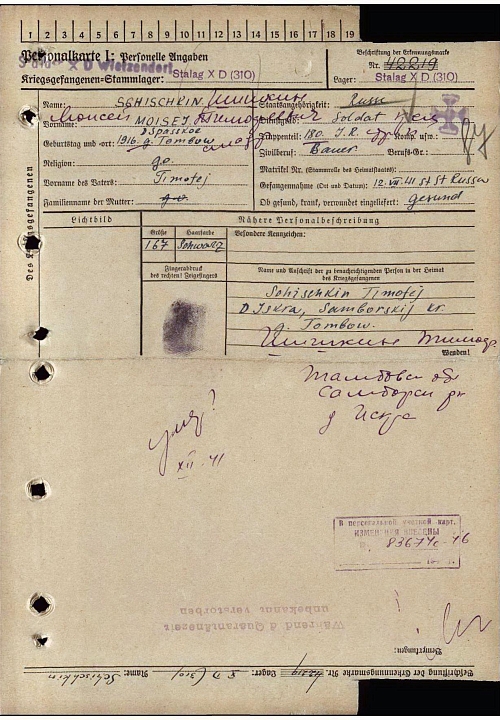 1 2 3 4 5 6 7 8 9 10 11 12 13 14 15 16 17 18 19
Personalkarte I: Personelle Angaben
Beschriftung der Erkennungsmarke
Nr. 42219
X D Wietzendorf
Kriegsgefangenen-Stammlager: Stalag X D (310)
Lager: Stalag X D (310)
Des Kriegsgefangenen
Name: SCHISCHKIN Шишкин
Staatsangehörigkeit: Russe
Vorname: MOISEJ Моисей
Dienstgrad: Soldat
D Spasskoe
Geburtstag und -ort: 1916. g. Tombow
Truppenteil: 180. J.R. Komp. usw.:
Religion: g.o.
Zivilberuf: Bauer Berufs-Gr.:
Matrikel Nr. (Stammrolle des Heimatstaates):
Vorname des Vaters: Timofej
Gefangennahme (Ort und Datum): 12. VII. 41 St Russa
Familienname der Mutter: g.o.
Ob gefund, krank, verwundet eingeliefert: gesund
Lichtbild
Nähere Personalbeschreibung
Größe
Haarfarbe
Besondere Kennzeichen:
167
Schwarz
Fingerabdruck
des rechten! Zeigefingers
Name und Anschrift der zu benachrichtigenden Person in der Heimat
des Kriegsgefangenen
Schischkin Timofej
D Iskra, Samborskij kr.
g. Tombow.
Шишкин Тимоф.
Wenden!
Тамбовс об
Самборск рн
д Искра
умер?
XII. 41
В персональной учетной карт.
ИЗМЕНЕНИЯ ВНЕСЕНЫ
83674с-46
Während d Quarantänezeit
unbekannt verstorben
Bemerkungen:
Beschriftung der Erkennungsmarke Nr. 42219 Lager: X D (310) Name: Schischkin